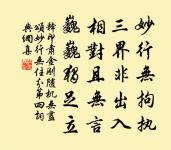 妙行無拘執
三界非出入
相對且無言
巍巍獨足立
釋印肅金剛隨機無盡
頌妙行無住分第四詞
典網集